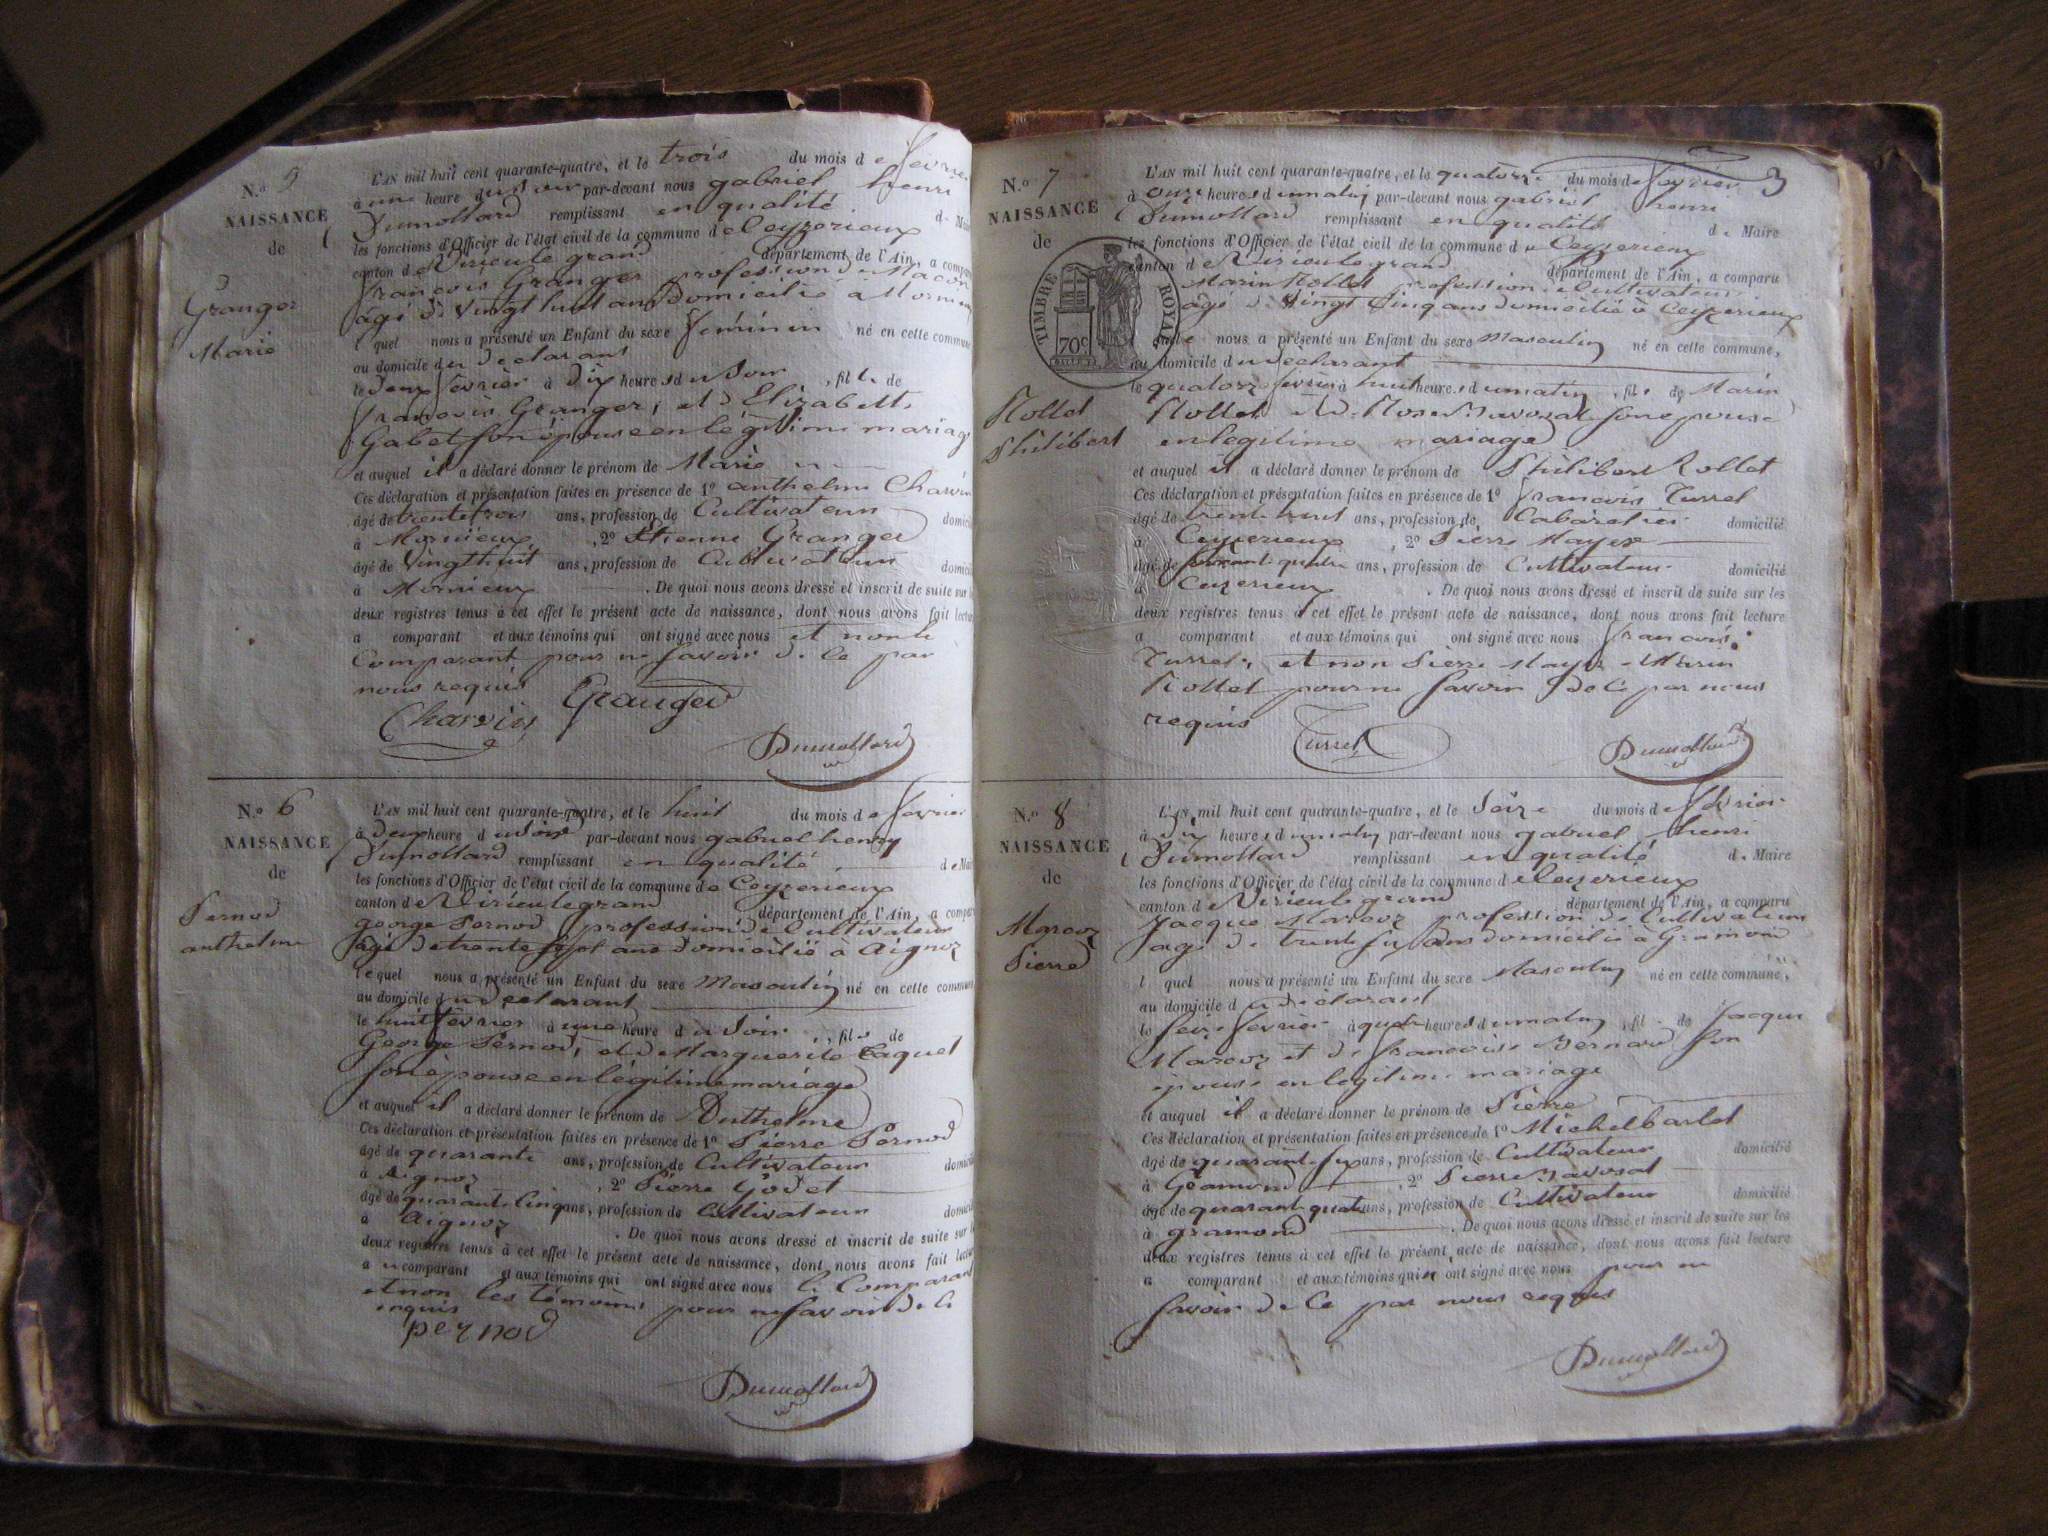 N.o 5
NAISSANCE
de
Granger
Marie
L'AN mil huit cent quarante-quatre, et le trois du mois de fevrier
à une heure du soir par-devant nous gabriel henri
Dumollard remplissant en qualité de Maire
les fonctions d'Officier de l'état civil de la commune de Ceyzerieux
canton de Virieulegrand département de l'Ain, a comparu
francois Granger profession de Macon
agé de vingt huit ans domicilié à Mornieux
l quel nous a présenté un Enfant du sexe feminin né en cette commune
au domicile du declarant
le deux fevrier à dix heures du soir, fille de
francois Granger, et d Elizabeth
Gabet son épouse en légitime mariage
et auquel il a déclaré donner le prénom de Marie
Ces déclaration et présentation faites en présence de 1o anthelme Charvin
âgé de trente trois ans, profession de Cultivateur domicilié
à Mornieux, 2o Etienne Granger
âgé de vingt huit ans, profession de Cultivateur domicilié
à Mornieux. De quoi nous avons dressé et inscrit de suite sur les
deux registres tenus à cet effet le présent acte de naissance, dont nous avons fait lecture
a comparant et aux témoins qui ont signé avec nous et non le
Comparant pour ne savoir de ce par
nous requis Granger
Charvin
Dumollard
N.o 6
NAISSANCE
de
Pernod
anthelme
L'AN mil huit cent quarante-quatre, et le huit du mois de fevrier
à deux heure du soir par-devant nous gabriel henry
Dumollard remplissant en qualité de Maire
les fonctions d'Officier de l'état civil de la commune de Ceyzerieux
canton de Virieulegrand département de l'Ain, a comparu
george Pernod profession de Cultivateur
agé de trente sept ans domicilié à Aignoz
lequel nous a présenté un Enfant du sexe Masculin né en cette commune
au domicile du declarant
le huit fevrier à une heure du soir, fils de
George Pernod, et de Marguerite Caquet
son épouse en légitime mariage
et auquel il a déclaré donner le prénom de Anthelme
Ces déclaration et présentation faites en présence de 1o Pierre Pernod
âgé de quarante ans, profession de Cultivateur domicilié
à Aignoz, 2o Pierre Godet
âgé de quarante Cinq ans, profession de Cultivateur domicilié
à Aignoz. De quoi nous avons dressé et inscrit de suite sur les
deux registres tenus à cet effet le présent acte de naissance, dont nous avons fait lecture
au comparant et aux témoins qui ont signé avec nous le Comparant
et non les témoins pour ne savoir de ce
requis
pernod
Dumollard
3
N.o 7
NAISSANCE
de
TIMBRE ROYAL
70c
Rollet
Philibert
L'AN mil huit cent quarante-quatre, et le quatorze du mois de fevrier
à onze heures du matin par-devant nous gabriel henri
Dumollard remplissant en qualité de Maire
les fonctions d'Officier de l'état civil de la commune de Ceyzerieux
canton de Virieulegrand département de l'Ain, a comparu
Marin Rollet profession Cultivateur
agé de vingt Cinq ans domicilié à Ceyzerieux
nous a présenté un Enfant du sexe Masculin né en cette commune,
au domicile du declarant
le quatorze fevrier à huit heures du matin, fils de Marin
Rollet et de Rose Bavosat son epouse
en legitime mariage
et auquel il a déclaré donner le prénom de Philibert Rollet
Ces déclaration et présentation faites en présence de 1o francois Turrel
âgé de trente huit ans, profession de Cabaretier domicilié
à Ceyzerieux, 2o Pierre Mayer
âgé de soixante quatre ans, profession de Cultivateur domicilié
à Ceyzerieux. De quoi nous avons dressé et inscrit de suite sur les
deux registres tenus à cet effet le présent acte de naissance, dont nous avons fait lecture
a comparant et aux témoins qui ont signé avec nous francois
Turrel, et non Pierre Mayer Marin
Rollet pour ne savoir de ce par nous
requis Turrel
Dumollard
N.o 8
NAISSANCE
de
Marcoz
Pierre
L'AN mil huit cent quarante-quatre, et le seize du mois de fevrier
à dix heures du matin par-devant nous gabriel henri
Dumollard remplissant en qualité de Maire
les fonctions d'Officier de l'état civil de la commune de Ceyzerieux
canton de Virieulegrand département de l'Ain, a comparu
Jacque Marcoz profession de Cultivateur
agé de trente six ans domicilié à Gramond
l quel nous a présenté un Enfant du sexe Masculin né en cette commune,
au domicile du declarant
le seize fevrier à quatre heures du matin, fil de Jacque
Marcoz et de francoise Bernard son
epouse en legitime mariage
et auquel il a déclaré donner le prénom de Pierre
Ces déclaration et présentation faites en présence de 1o Michel barlet
âgé de quarante six ans, profession de Cultivateur domicilié
à Gramond, 2o Pierre Bavosat
âgé de quarante quatre ans, profession de Cultivateur domicilié
à gramond. De quoi nous avons dressé et inscrit de suite sur les
deux registres tenus à cet effet le présent acte de naissance, dont nous avons fait lecture
a comparant et aux témoins qui n ont signé avec nous pour ne
savoir de ce par nous requis
Dumollard